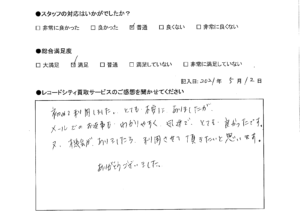 ●スタッフの対応はいかがでしたか?
□ 非常に良かった □ 良かった ☑ 普通 □ 良くない □ 非常に良くない
●総合満足度
□ 大満足 ☑ 満足 □ 普通 □ 満足していない □ 非常に満足していない
記入日: 2021 年 5 月 12 日
●レコードシティ買取サービスのご感想を聞かせてください
初めて利用しました。とても
メールでのお返事も わかりやすく 迅速で、とても 良かったです。
又、機会が ありましたら、利用させて 頂きたいと 思います。
ありがとうございました。